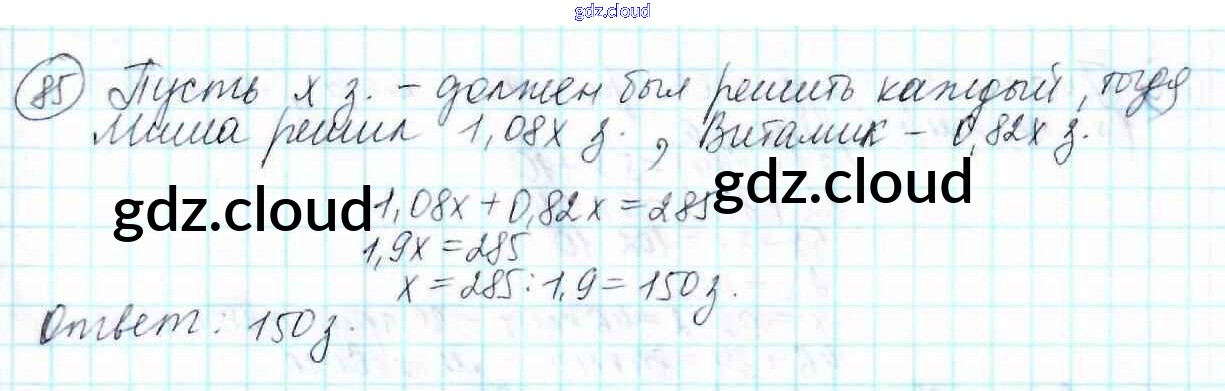 gdz.cloud
85 Пусть x з. – должен был решить каждый, тогда
Миша решил 1,08x з., Виталик – 0,82x з.
gdz.cloud
gdz.cloud
1,08x + 0,82x = 285
1,9x = 285
x = 285 : 1,9 = 150 з.
Ответ: 150 з.